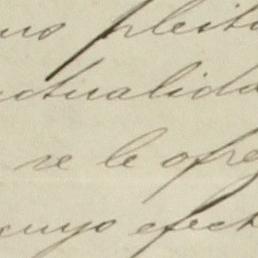 no pleito
ctualida
se le ofre
cuyo efect